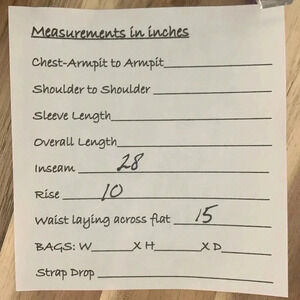 Measurements in inches
Chest-Armpit to Armpit
Shoulder to Shoulder
Sleeve Length
Overall Length
Inseam 28
Rise 10
Waist laying across flat 15
BAGS: W_____X H_____X D_____
Strap Drop